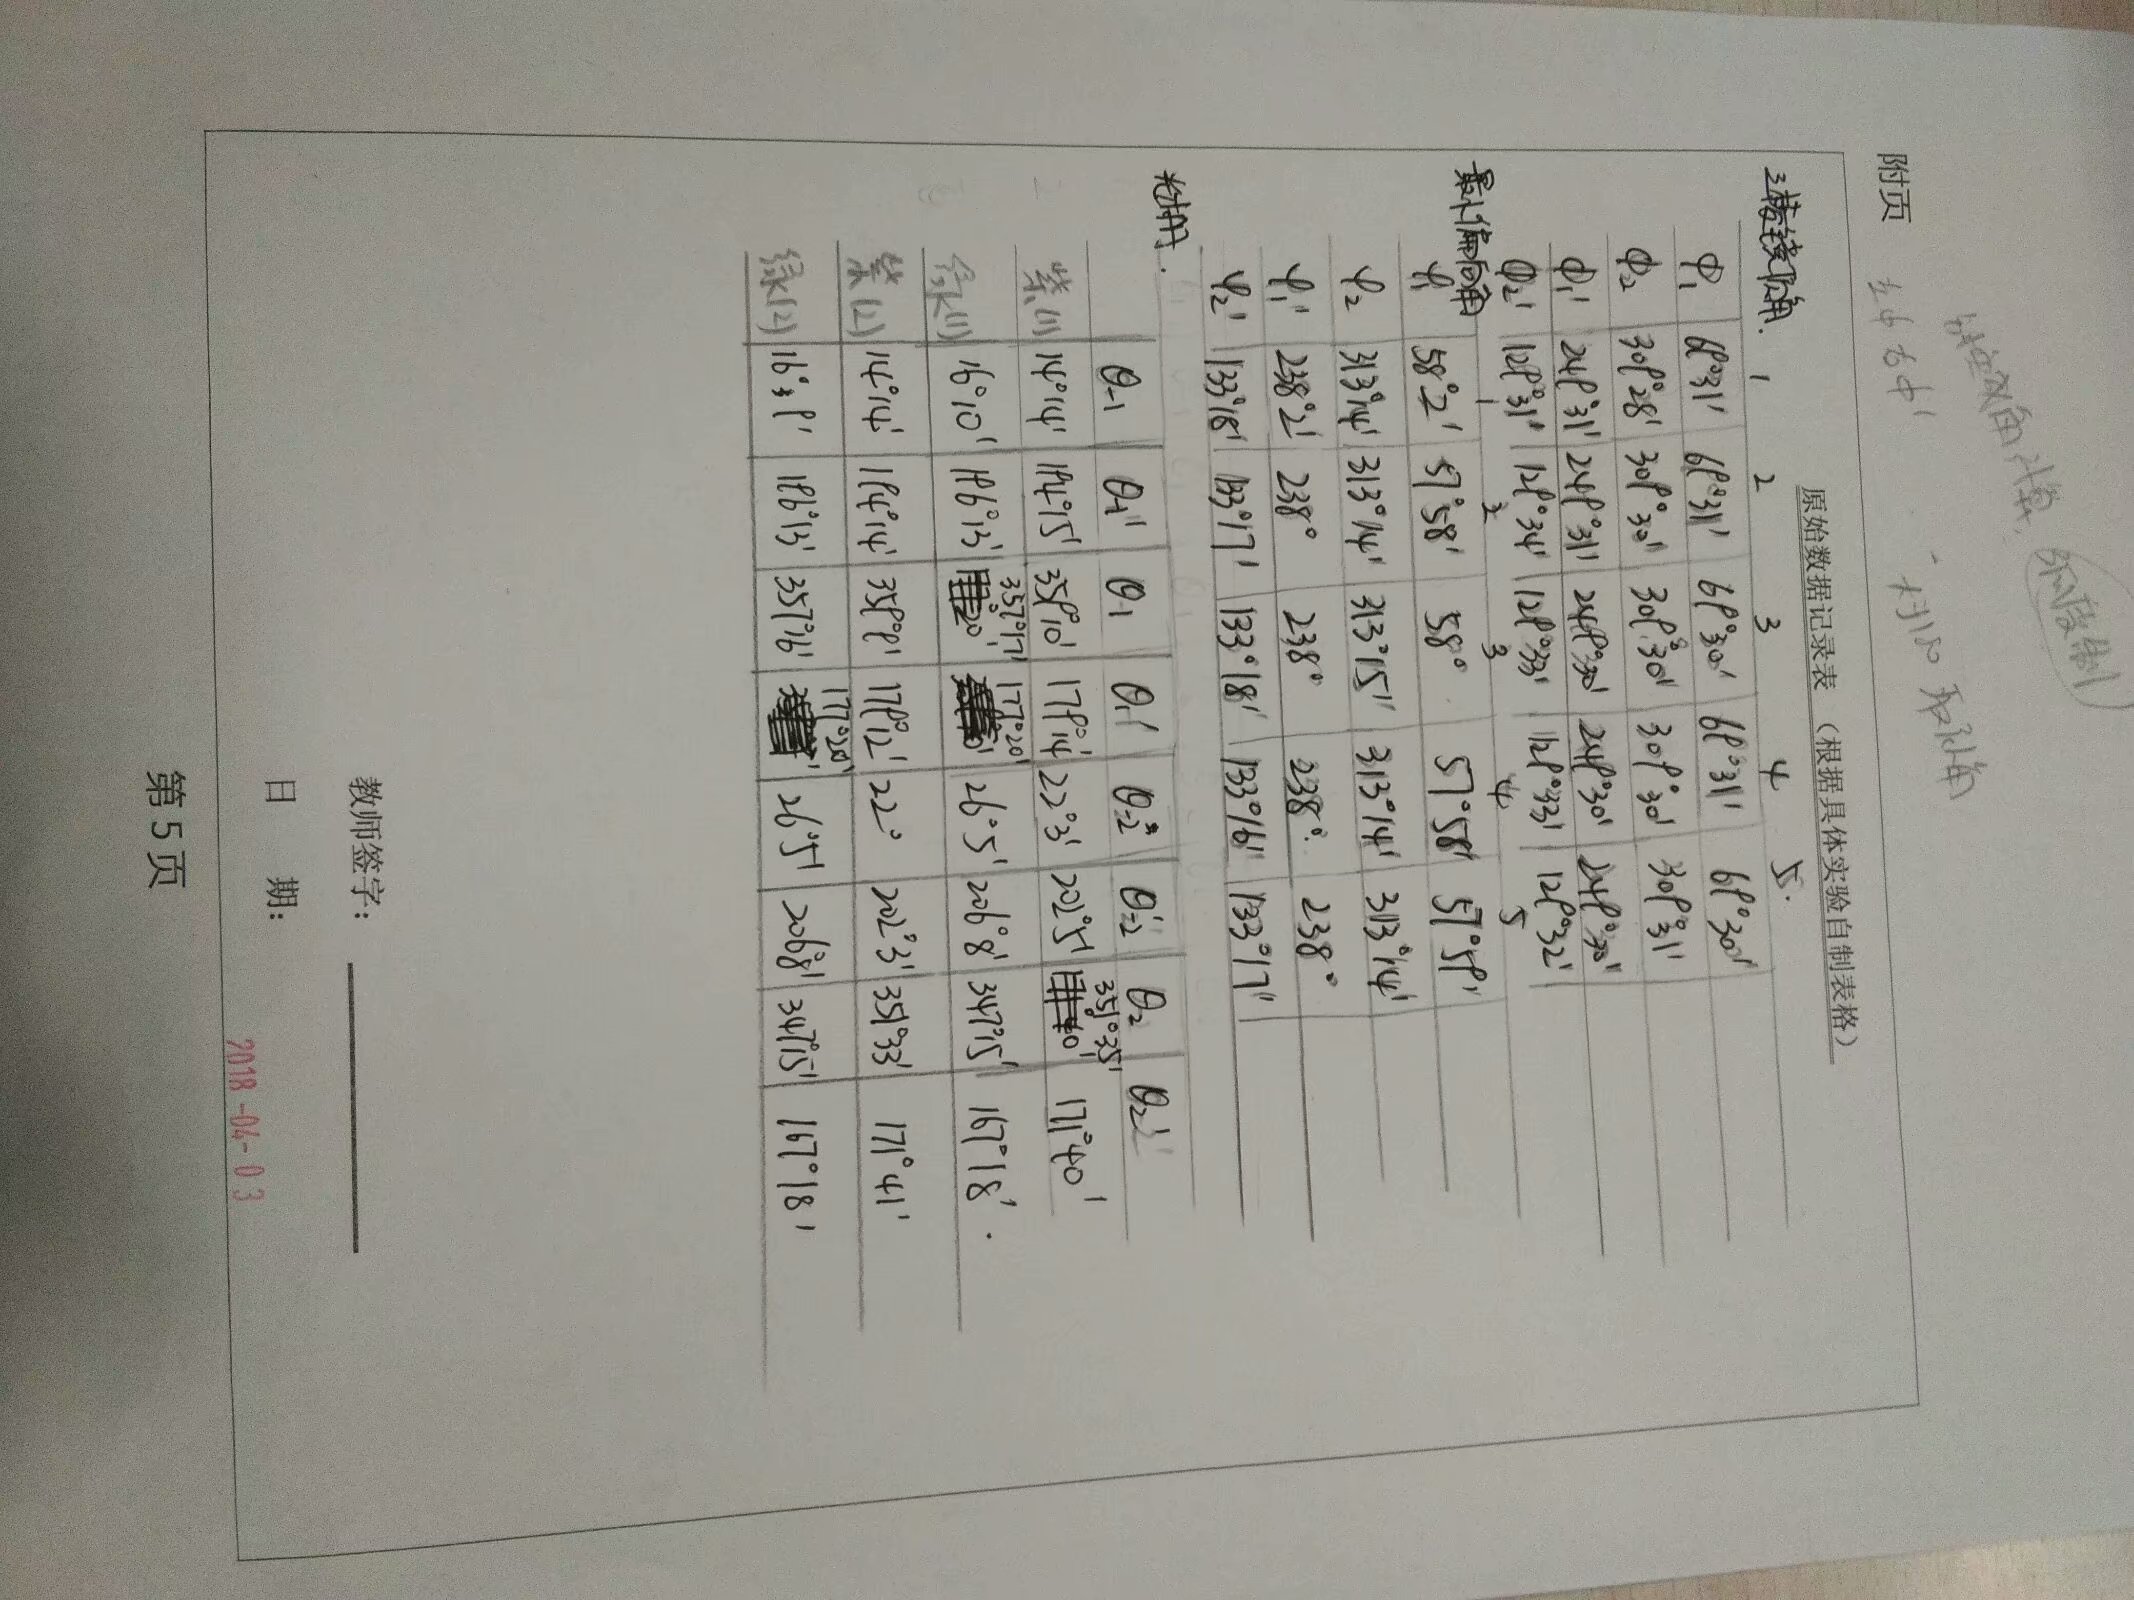 弧度制
附页
对180 取补角
原始数据记录表 （根据具体实验自制表格）
三棱镜顶角. 1 2 3 4 5.
Φ₁ 69°31′ 69°31′ 69°30′ 69°31′ 69°30′
Φ₂ 309°28′ 309°30′ 309°30′ 309°30′ 309°31′
Φ₁′ 249°31′ 249°31′ 249°30′ 249°30′ 249°30′
Φ₂′ 129°31′ 129°34′ 129°33′ 129°33′ 129°32′
最小偏向角 1 2 3 4 5
φ₁ 58°2′ 57°58′ 58° 57°58′ 57°59′
φ₂ 313°14′ 313°14′ 313°15′ 313°14′ 313°14′
φ₁′ 238°2′ 238° 238° 238° 238°
φ₂′ 133°18′ 133°17′ 133°18′ 133°16′ 133°17′
光栅.
θ₋₁ θ₋₁′ θ₁ θ₁′ θ₋₂ θ₋₂′ θ₂ θ₂′
紫(1) 14°14′ 194°15′ 359°10′ 179°14′ 22°3′ 202°5′ 351°35′ 171°40′
绿(1) 16°10′ 196°13′ 357°17′ 177°20′ 26°5′ 206°8′ 347°15′ 167°18′
紫(2) 14°14′ 194°14′ 359°9′ 179°12′ 22° 202°3′ 351°33′ 171°41′
绿(2) 16°9′ 196°13′ 357°16′ 177°20′ 26°5′ 206°8′ 347°15′ 167°18′
教师签字：
日 期：
2018-04-03
第 5 页